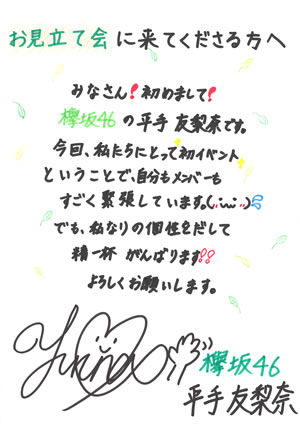 お見立て会に来てくださる方へ
みなさん!初めまして!
欅坂46の平手友梨奈です。
今回、私たちにとって初イベント
ということで、自分もメンバーも
すごく緊張しています。(;´･ω･`)
でも、私なりの個性をだして
精一杯がんばります!!
よろしくお願いします。
Yurina
欅坂46
平手友梨奈